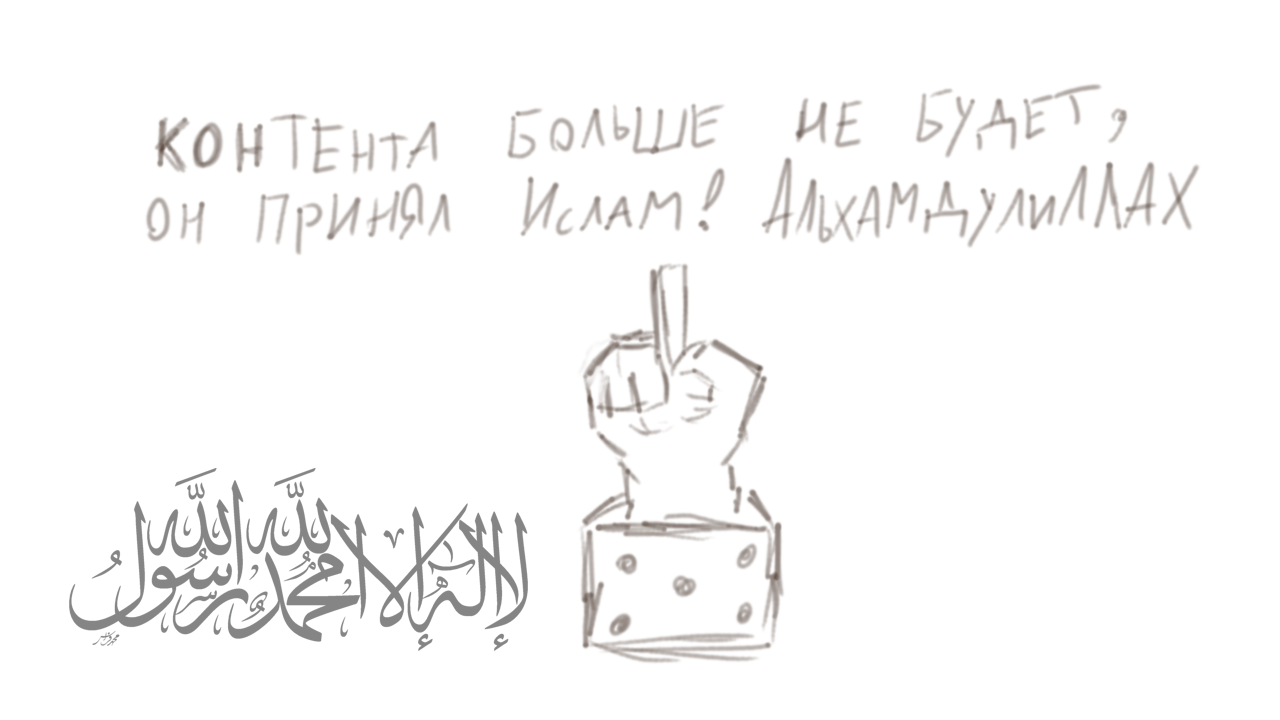 КОНТЕНТА БОЛЬШЕ НЕ БУДЕТ,
ОН ПРИНЯЛ ИСЛАМ! АЛЬХАМДУЛИЛЛАХ
لا إله إلا الله محمد رسول الله